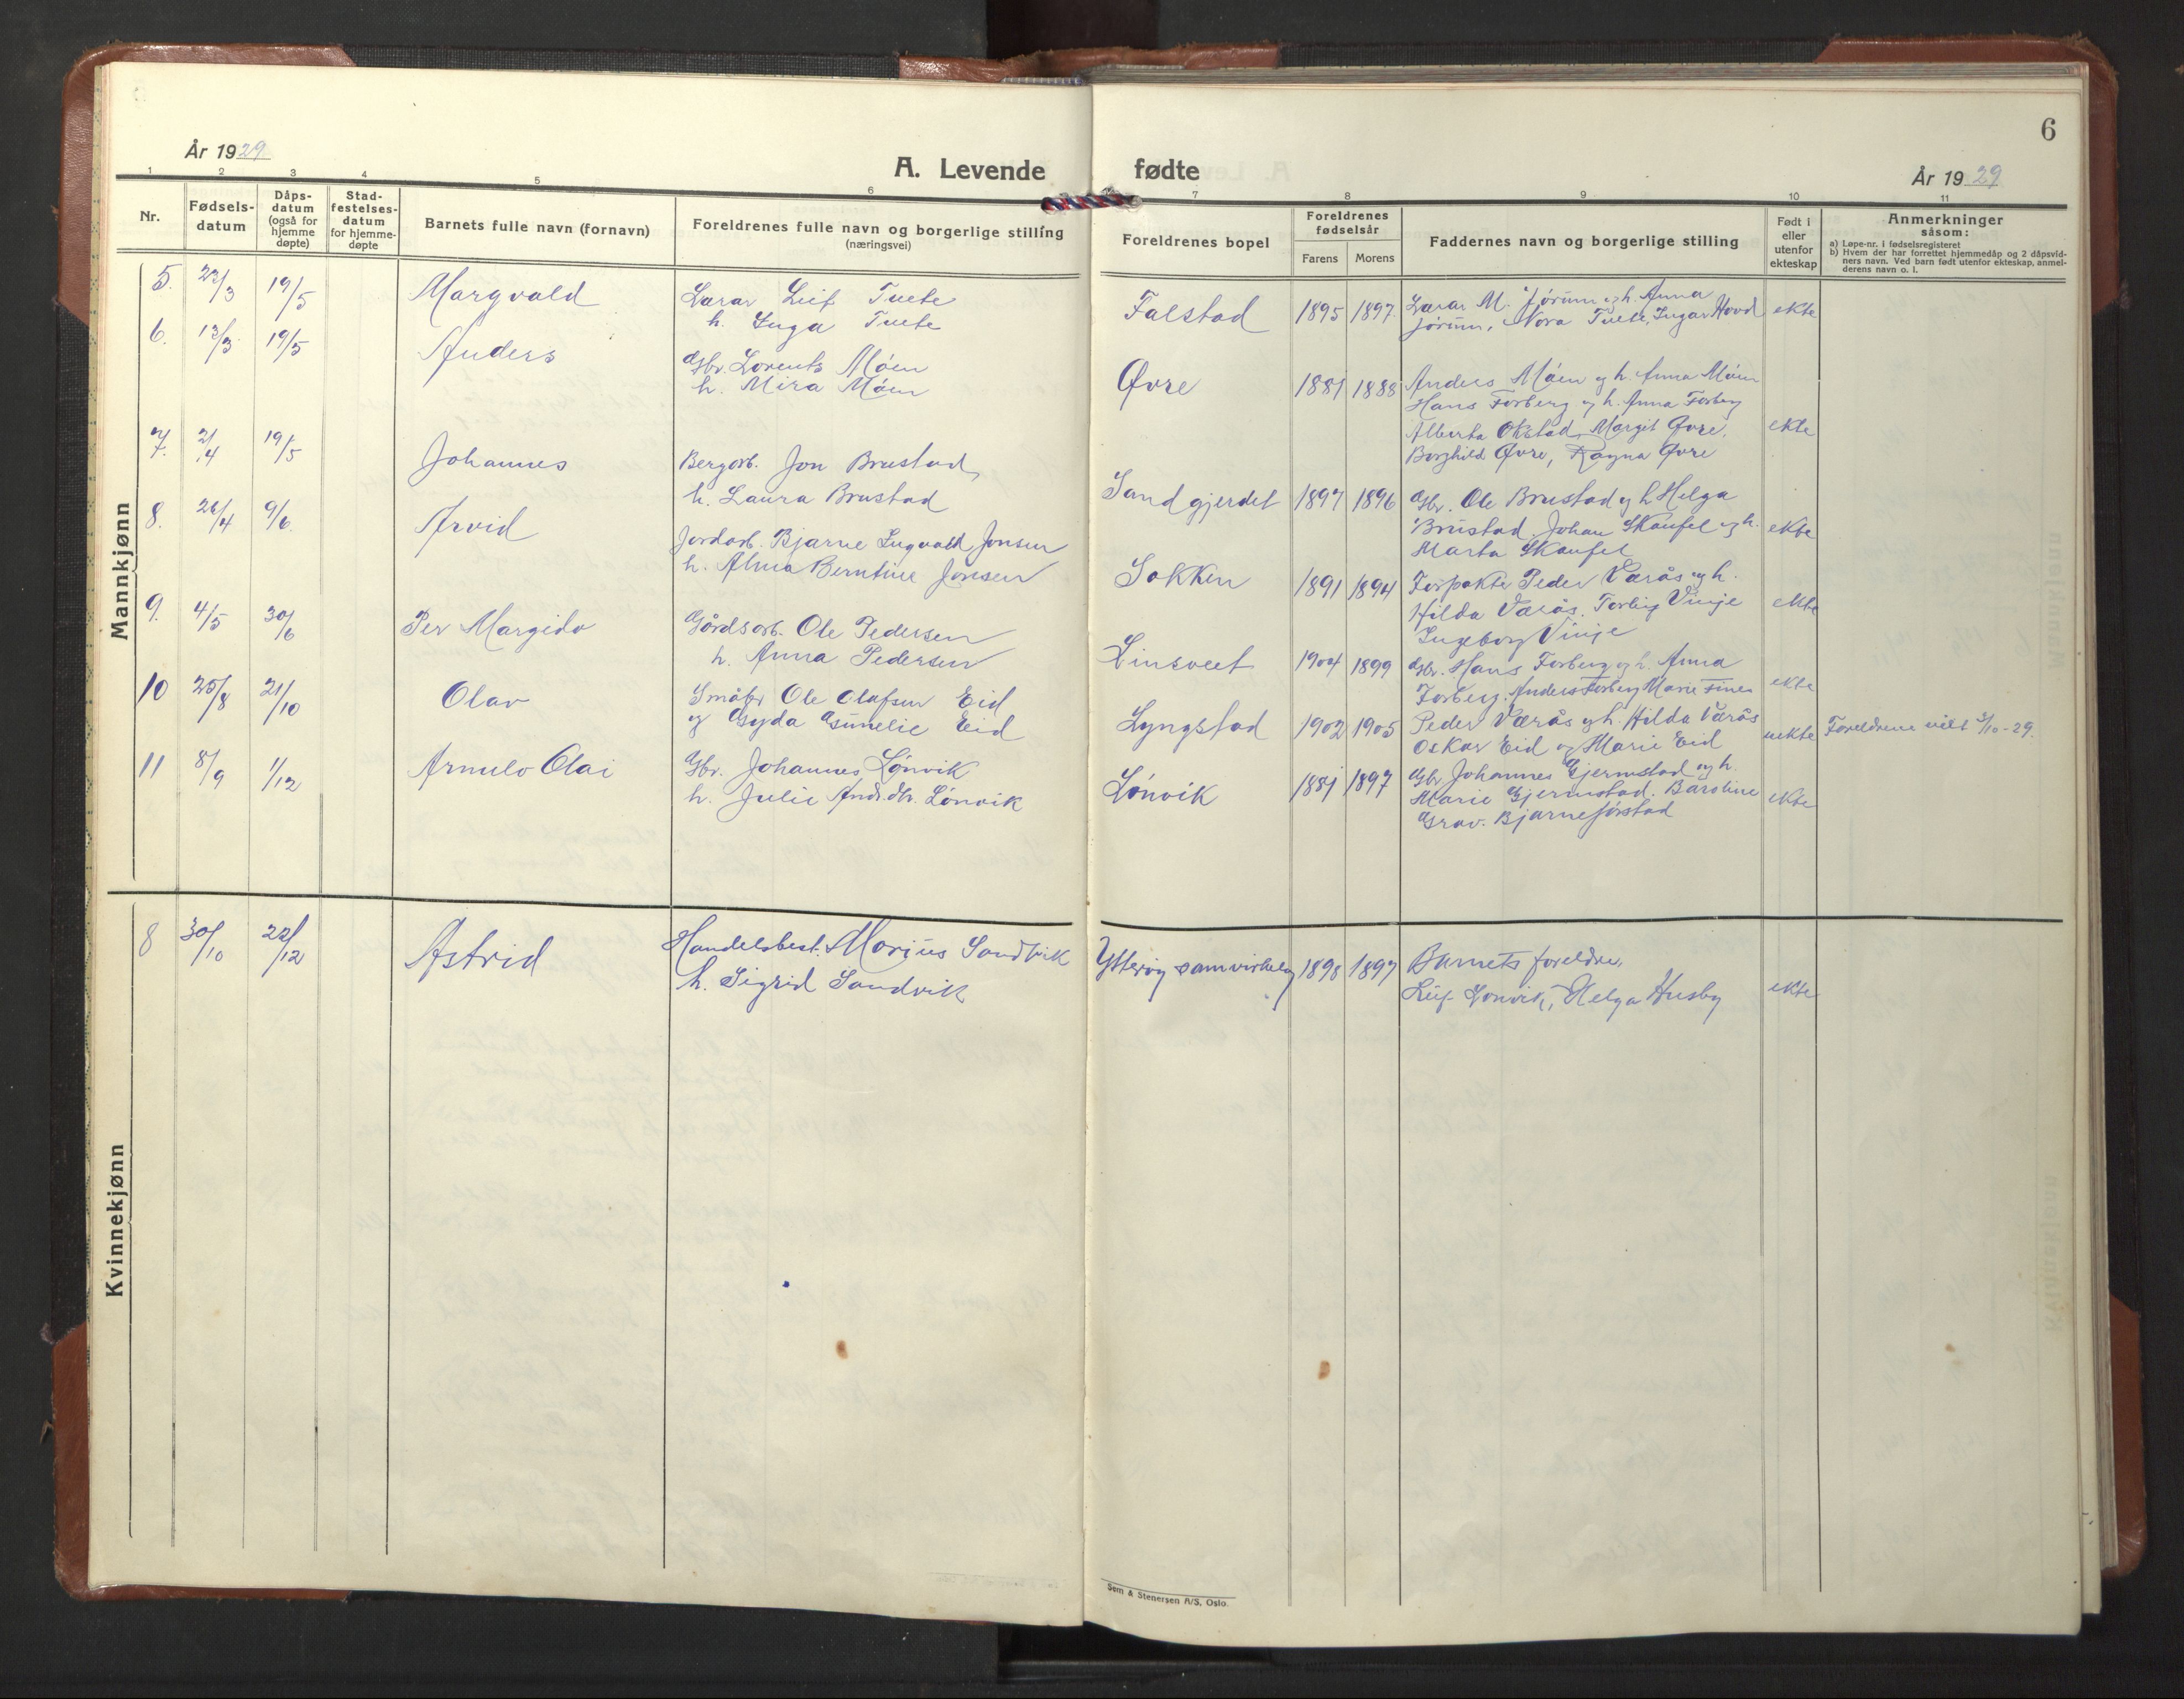 År 1929
A. Levende
1 2 3 4 5 6
Nr.
Fødsels-
datum
Dåps-
datum
(også for
hjemme
døpte)
Stad-
festelses-
datum
for hjemme-
døpte
Barnets fulle navn (fornavn)
Foreldrenes fulle navn og borgerlige stilling
(næringsvei)
Mannkjønn
5. 22/3 19/5 Margvald Lærar Leif Tuete
h. Inga Tuete
6. 13/3 19/5 Anders Gbr. Lorents Móen
h. Mira Móen
7. 2/4 19/5 Johannes Bergarb. Jon Brustad,
h. Laura Brustad
8. 26/4 9/6. Arvid Jordarb. Bjarne Ingvald Jonsen
h. Alma Berntine Jonsen
9. 4/5 30/6 Per Margido Gårdsarb. Ole Pedersen
h. Anna Pedersen
10 25/8 21/10 Olav Småbr Ole Olafsen Eid
og Gyda Gunelie Eid
11 8/9 1/12 Arnulv Olai Gbr. Johannes Lønvik
h. Julie Andr.dtr. Lønvik
Kvinnekjønn
8 30/10 22/12 Astrid Handelsbest. Marius Sandvik
h. Sigrid Sandvik
6
fødte
År 1929
7 8 9 10 11
Foreldrenes bopel
Foreldrenes
fødselsår
Farens Morens
Faddernes navn og borgerlige stilling
Født i
eller
utenfor
ekteskap
Anmerkninger
såsom:
a) Løpe-nr. i fødselsregisteret
b) Hvem der har forrettet hjemmedåp og 2 dåpsvid-
ners navn. Ved barn født utenfor ekteskap, anmel-
derens navn o. l.
Falstad 1895 1897. Lærar M. Jørum og h. Anna
Jørum, Nora Tuete, Ingar Hovd ekte
Øvre 1881 1888 Anders Móen og h. Anna Móen
Hans Forberg og h. Anna Forberg
Alberta Okstad, Margit Øvre, ekte
Borghild Øvre, Ragna Øvre
Sandgjerdet 1897 1896 Gbr. Ole Brustad og h Helga
Brustad Johan Skaufel og h. ekte
Marta Skaufel
Sokken 1891 1894 Forpakter Peder Værås og h.
Hilda Værås. Torbjg Vinje ekte
Ingeborg Vinje
Linsveet 1904 1899 Gbr. Hans Forberg og h. Anna
Forberg. Anders Forberg Marie Fines ekte
Lyngstad 1902 1905 Peder Værås og h. Hilda Værås
Oskar Eid og Marie Eid uekte Foreldrene viet 3/10-29.
Lønvik 1881 1897 Gbr. Johannes Gjermstad og h.
Marie Gjermstad. Baroline ekte
Grav. Bjarne Jørstad
Ytterøy samvirkelag 1898 1897 Barnets foreldre,
Leif Lønvik, Helga Husby ekte
Sem & Stenersen A/S, Oslo.